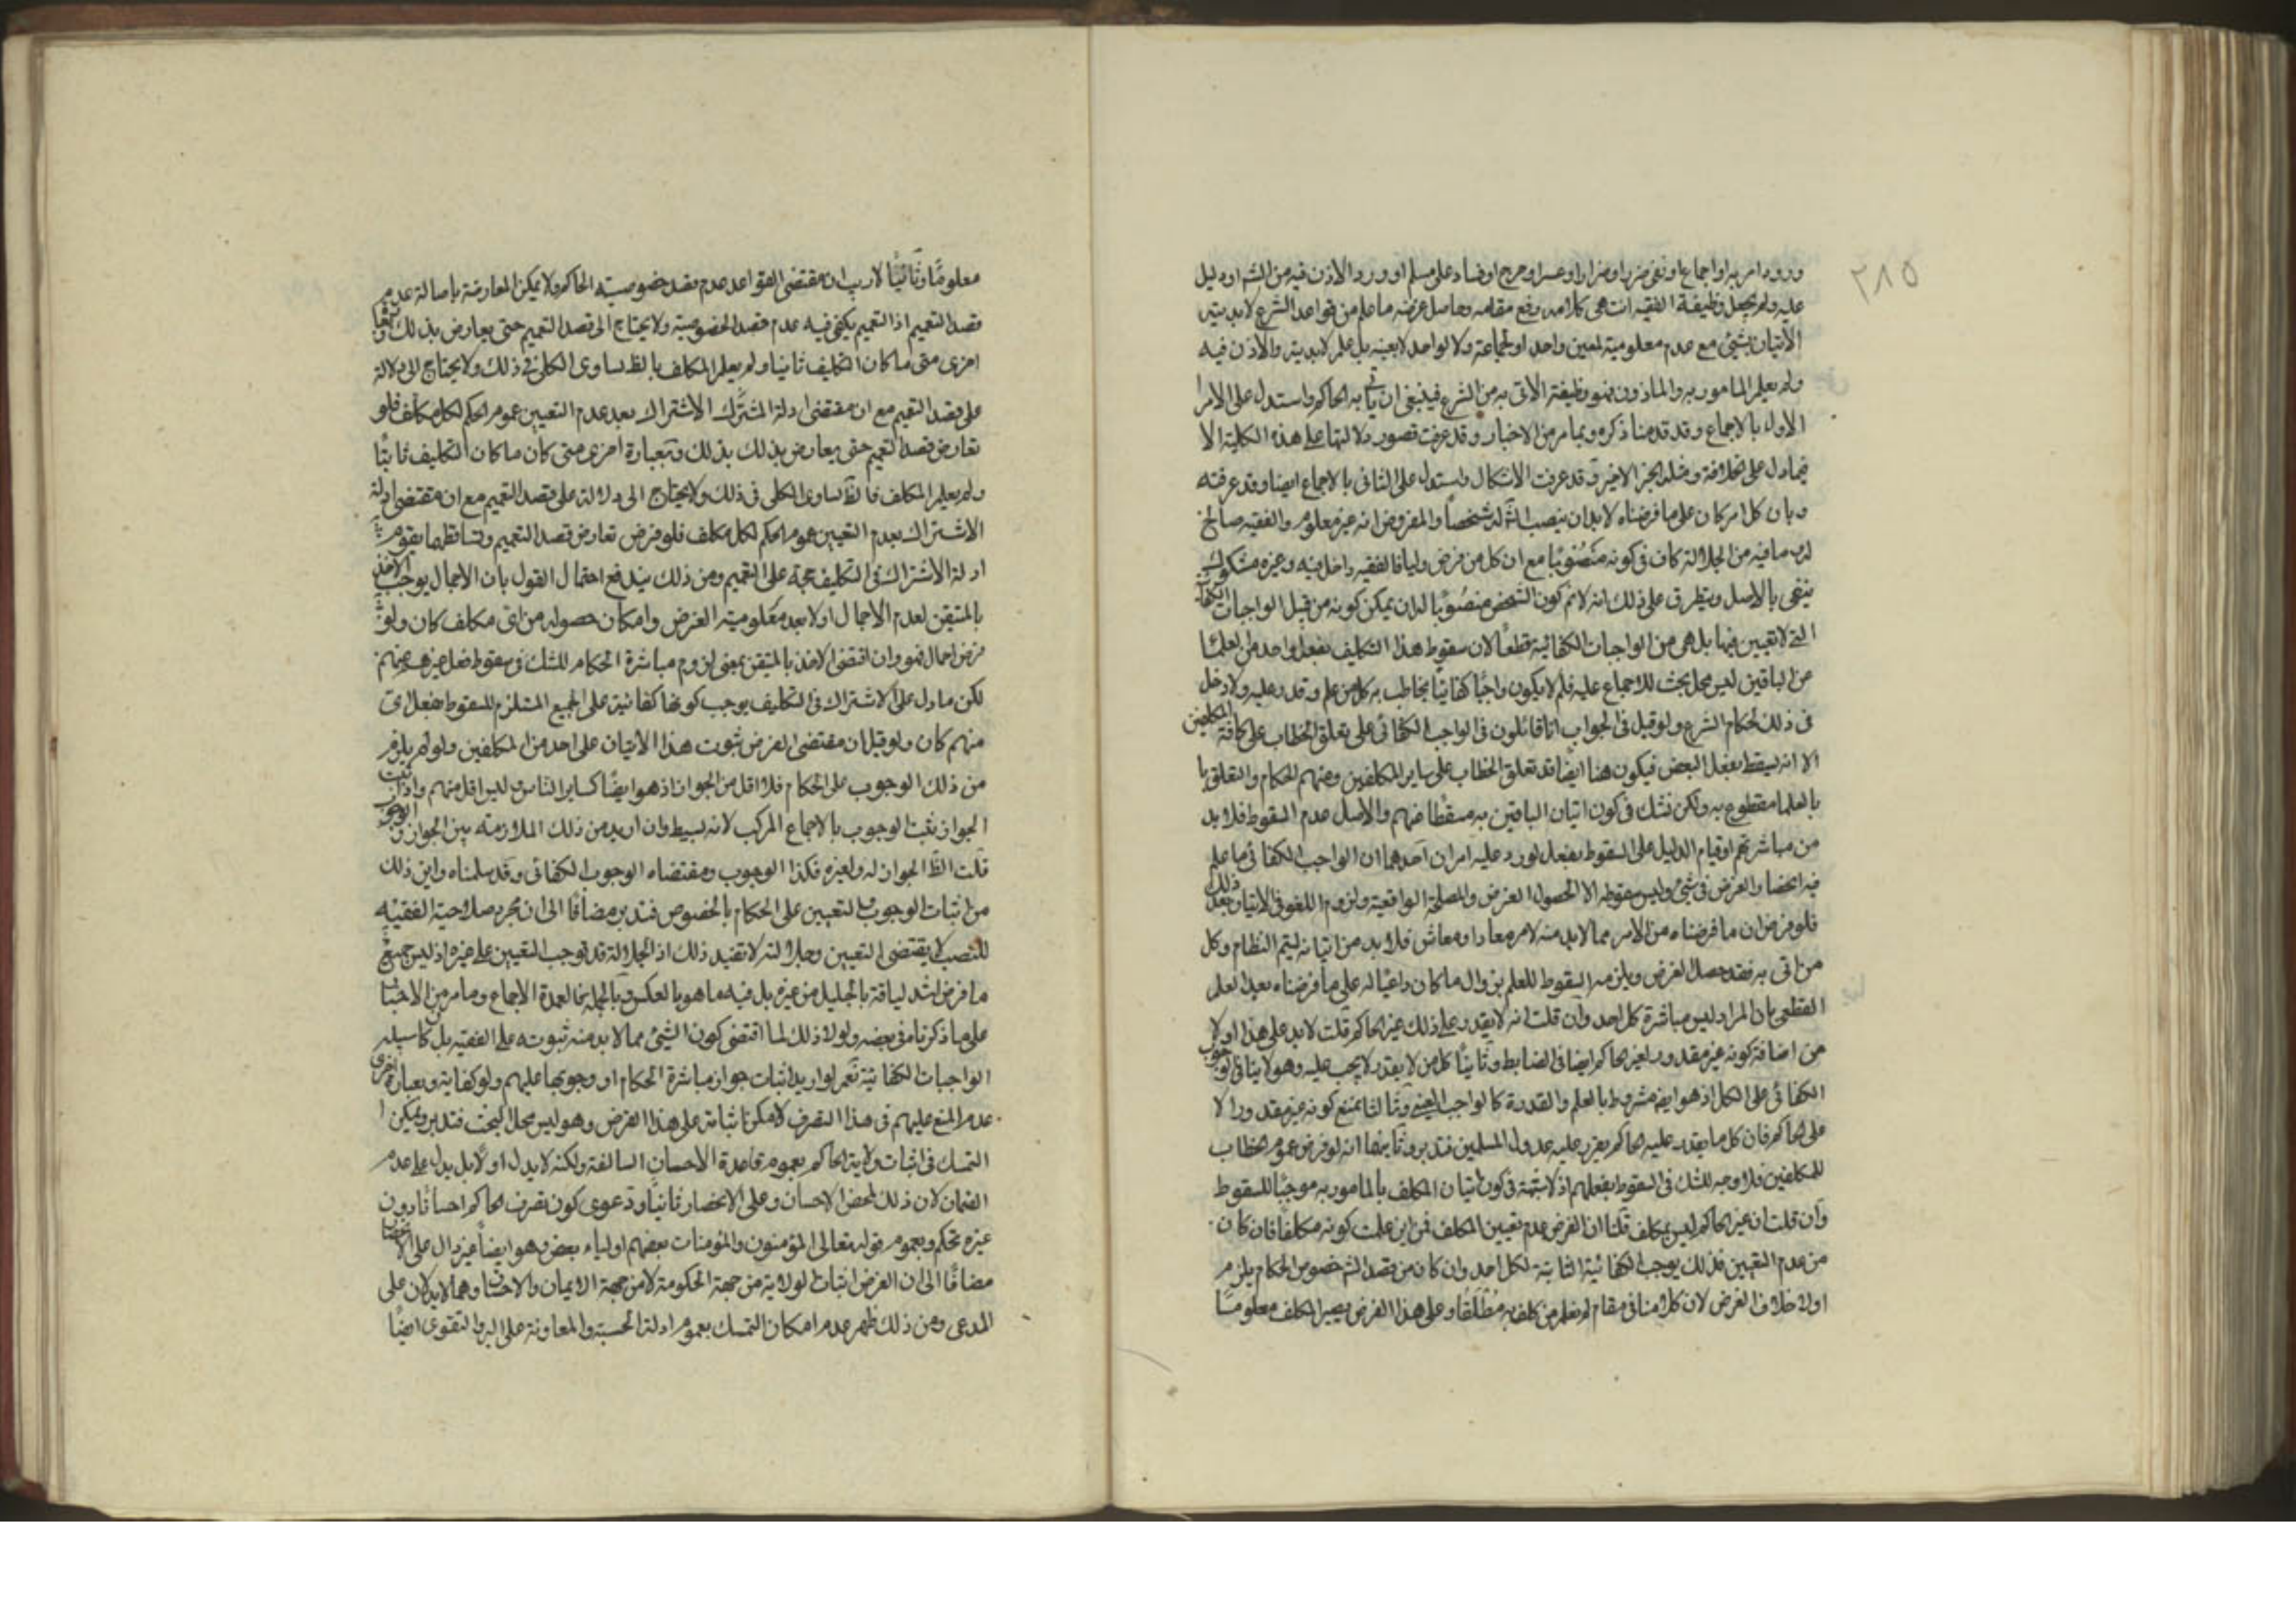 ٢٨٥
ورود امر به او اجماع او نفي ضرر او ضرار او عسر او حرج او فساد على مسلم او ورود الاذن فيه من الش او دليل
عليه ولم يجعل وظيفة الفقيه ات هى كلامه رفع مقامه وحاصل غرضه ما علم من قواعد الشرع لابدية
الاتيان بشئ مع عدم معلومية لمعين واحد او لجماعة ولا لواحد لا بعينه بل علم لابدية والاذن فيه
ولم يعلم المامور به والماذون فهو وظيفة الاتى به من الشرع فينبغى ان ياتى به الحاكم واستدل على الامر
الاول بالاجماع وقد قدمنا ذكره وبما مر من الاخبار وقد عرفت قصور دلالتها على هذه الكلية الا
فيما دل على الخلافة ومثله الخبر الاخير وقد عرفت الاشكال واستدل على الثانى بالاجماع ايضا وقد عرفته
وبان كل امر كان على ما فرضناه لابد ان ينصب الش له شخصا والمفروض انه غير معلوم والفقيه صالح
لها وما فيه من الجلالة كان فى كونه منصوبا مع ان كل من فرض وليا فالفقيه داخل فيه وغيره مشكوك
ينفى بالاصل ويتطرق على ذلك انه لا نم كون الشخص منصوبا له لان يمكن كونه من قبل الواجبات الكفائية
التى لا تعيين فيها بل هى من الواجبات الكفائية قطعا لان سقوط هذا التكليف بفعل واحد من العلماء
من الباقين ليس محل بحث للاجماع عليه فلم لا يكون واجبا كفائيا يخاطب به كل من علم وقدر عليه ولا دخل
فى ذلك لحكام الشرع ولو قيل فى الجواب انا قائلون فى الواجب الكفائى على تعلق الخطاب على كافة المكلفين
الا انه يسقط بفعل البعض فيكون هنا ايضا قد تعلق الخطاب على ساير المكلفين ومنهم الحكام والتعلق
بالعلما مقطوع به ولكن نشك فى كون اتيان الباقين به مسقطا عنهم والاصل عدم السقوط فلا بد
من مباشرتهم او قيام الدليل على السقوط بفعل لورد عليه امران احدهما ان الواجب الكفائى ما علم
فيه انحصار الغرض فى شئ وليس سقوطه الا لحصول الغرض والمصلحة الواقعية ولزوم اللغو فى الاتيان بعد ذلك
فلو فرض ان ما فرضناه من الامر مما لابد منه لامر معاد او معاش فلابد من اتيانه ليتم النظام وكل
من اتى به فقد حصل الغرض ويلزمه السقوط للعلم بزوال ما كان داعيا له على ما فرضناه بعد العلم
القطعى بان المراد ليس مباشرة كل احد وان قلت انه لا يقدر على ذلك غير الحاكم قلت لابد على هذا اولا
من اضافة كونه غير مقدور لغير الحاكم ايضا فى الضابط وثانيا كل من لا يقدر لا يجب عليه وهو لا ينافى الوجوب
الكفائى على الكل اذ هو ايضا مشروط بالعلم والقدرة كالواجب العينى وثالثا نمنع كونه غير مقدور الا
على الحاكم فان كل ما يقدر عليه الحاكم يقدر عليه عدول المسلمين فتدبر وثانيهما انه لو فرض عموم الخطاب
للمكلفين فلا وجه للشك فى السقوط بفعلهم اذ لا شبهة فى كون اتيان المكلف بالمامور به موجبا للسقوط
وان قلت ان غير الحاكم ليس بمكلف قلنا ان الفرض عدم تعيين المكلف فمن اين علمت كونه مكلفا فان كان
من عدم التعيين فذلك يوجب الكفائية الثابتة لكل احد وان كان من قصد الش خصوص الحكام يلزم
اولا خلاف الفرض لان كلامنا فى مقام لم نعلم من كلف به مطلقا وعلى هذا الفرض يصير المكلف معلوما
معلوما وثانيا لا ريب ان مقتضى القواعد عدم قصد خصوصية الحاكم ولا يمكن المعارضة باصالة عدم
قصد التعميم اذ التعميم يكفى فيه عدم قصد الخصوصية ولا يحتاج الى قصد التعميم حتى يعارض بذلك وبعبارة
اخرى متى ما كان التكليف ثابتا ولم يعلم المكلف بالظ تساوى الكل فى ذلك ولا يحتاج الى دلالة
على قصد التعميم مع ان مقتضى ادلة المشترك الاشتراك بعد عدم التعيين عموم الحكم لكل مكلف فلو
تعارض قصد التعميم حتى يعارض بذلك بذلك وبعبارة اخرى متى كان ما كان التكليف ثابتا
ولم يعلم المكلف فالظ تساوى الكل فى ذلك ولا يحتاج الى دلالة على قصد التعميم مع ان مقتضى ادلة
الاشتراك بعد عدم التعيين عموم الحكم لكل مكلف فلو فرض تعارض قصد التعميم وتساقطهما يقوم
ادلة الاشتراك فى التكليف حجة على التعميم ومن ذلك يندفع احتمال القول بان الاجمال يوجب الاخذ
بالمتيقن لعدم الاجمال اولا بعد معلومية الغرض وامكان حصوله من اى مكلف كان ولو
فرض اجمال فهو وان اقتضى الاخذ بالمتيقن بمعنى لزوم مباشرة الحكام للشك فى سقوط فعل غيرهم عنهم
لكن ما دل على الاشتراك فى التكليف يوجب كونها كفائية على الجميع المستلزم للسقوط بفعل اى
منهم كان ولو قيل ان مقتضى الفرض ثبوت هذا الاتيان على احد من المكلفين ولو لم يلزم
من ذلك الوجوب على الحكام فلا اقل من الجواز اذ هو ايضا كساير الناس وليس اقل منهم واذا ثبت
الجواز ثبت الوجوب بالاجماع المركب لانه بسيط وان اريد من ذلك الملازمة بين الجواز والوجوب
قلت الظ الجواز له ولغيره فكذا الوجوب ومقتضاه الوجوب الكفائى وقد سلمناه واين ذلك
من اثبات الوجوب والتعيين على الحكام بالخصوص فتدبر مضافا الى ان مجرد صلاحية الفقيه
للنصب لا يقتضى التعيين وجلالته لا تفيد ذلك اذ الجلالة قد توجب التعيين على غيره اذ ليس جميع
ما فرض اشد لياقة بالجليل من غيره بل فيه ما هو بالعكس وبالجملة فالعمدة الاجماع وما مر من الاخبار
على ما ذكرناه فى بعضه ولولا ذلك لما اقتضى كون الشئ مما لابد منه ثبوته على الفقيه بل كان سبيله
الواجبات الكفائية نعم لو اريد اثبات جواز مباشرة الحكام او وجوبها عليهم ولو كفاية وبعبارة اخرى
عدم المنع عليهم فى هذا التصرف لامكن اثباته على هذا الفرض وهو ليس محل البحث فتدبر ويمكن
التمسك فى اثبات ولاية الحاكم بعموم قاعدة الاحسان السالفة ولكنه لا يدل اولا بل يدل على عدم
الضمان لان ذلك لمحض الاحسان وعلى الانحصار ثانيا ودعوى كون تصرف الحاكم احسانا دون
غيره تحكم وبعموم قوله تعالى المؤمنون والمؤمنات بعضهم اولياء بعض وهو ايضا غير دال على الانحصار
مضافا الى ان الغرض اثبات الولاية من جهة الحكومة لا من جهة الايمان والاحسان وهما لا يدلان على
المدعى ومن ذلك ظهر عدم امكان التمسك بعموم ادلة الحسبة والمعاونة على البر والتقوى ايضا